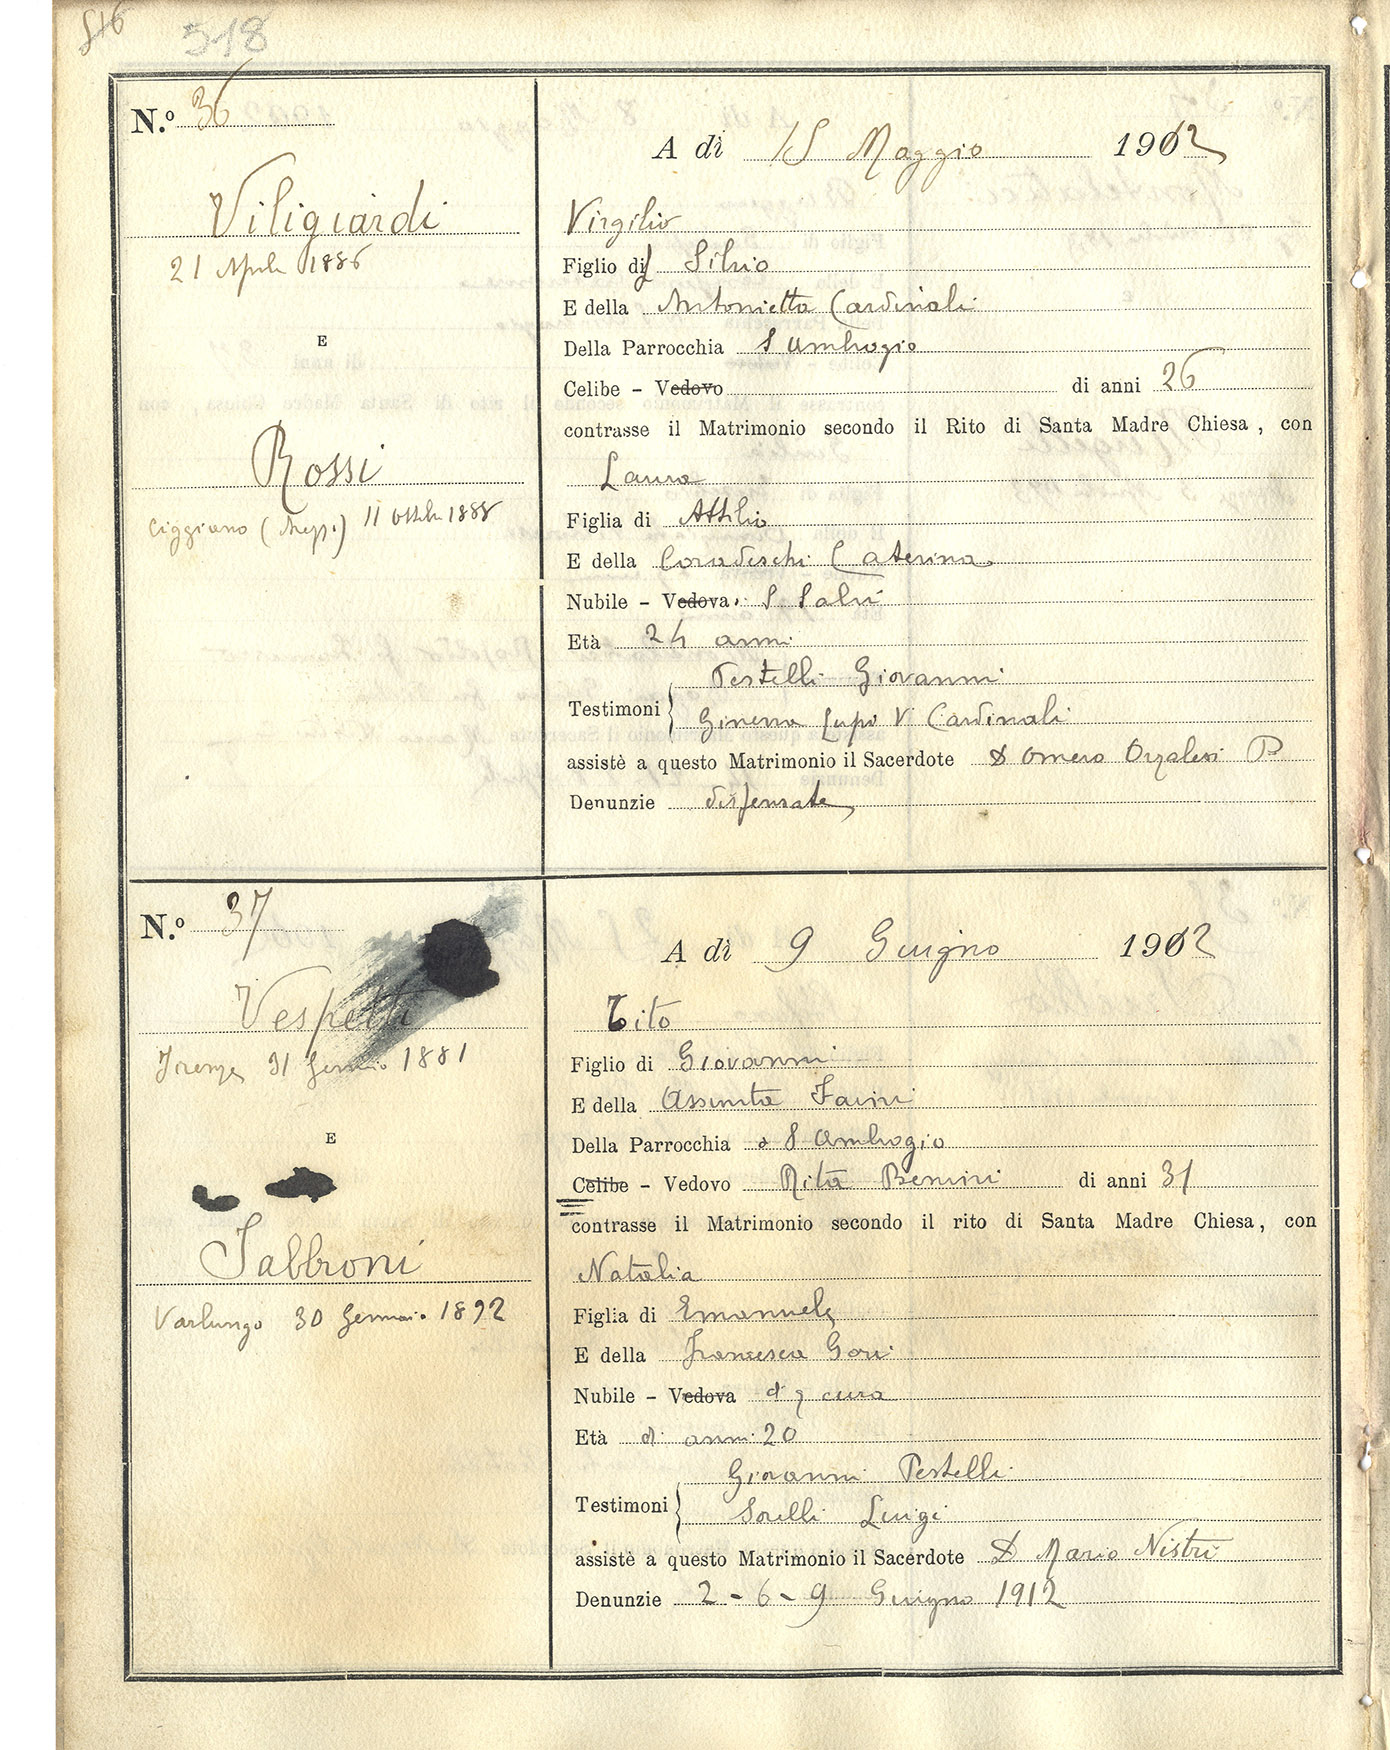 518
N.º 36
Viligiardi
21 Aprile 1886
E
Rossi
Ciggiano (Arezz.) 11 ottobr 1888
A dì 15 Maggio 1912
Virgilio
Figlio di Silvio
E della Antonietta Cardinali
Della Parrocchia S Ambrogio
Celibe - Vedovo di anni 26
contrasse il Matrimonio secondo il Rito di Santa Madre Chiesa, con
Laura
Figlia di Attilio
E della Coradeschi Caterina
Nubile - Vedova. S Salvi
Età 24 anni
Pestelli Giovanni
Testimoni Ginevra Lupi V. Cardinali
assistè a questo Matrimonio il Sacerdote D Omero Orzalesi P
Denunzie dispensate
N.º 37
Vespetti
Firenze 31 Gennaio 1881
E
Fabbroni
Varlungo 30 Gennaio 1892
A dì 9 Giugno 1912
Tito
Figlio di Giovanni
E della Assunta Favini
Della Parrocchia S Ambrogio
Celibe - Vedovo Rita Benvini di anni 31
contrasse il Matrimonio secondo il rito di Santa Madre Chiesa, con
Natalia
Figlia di Emanuele
E della Francesca Gori
Nubile - Vedova d q cura
Età di anni 20
Giovanni Pestelli
Testimoni Sorelli Luigi
assistè a questo Matrimonio il Sacerdote D Mario Nistri
Denunzie 2 - 6 - 9 Giugno 1912